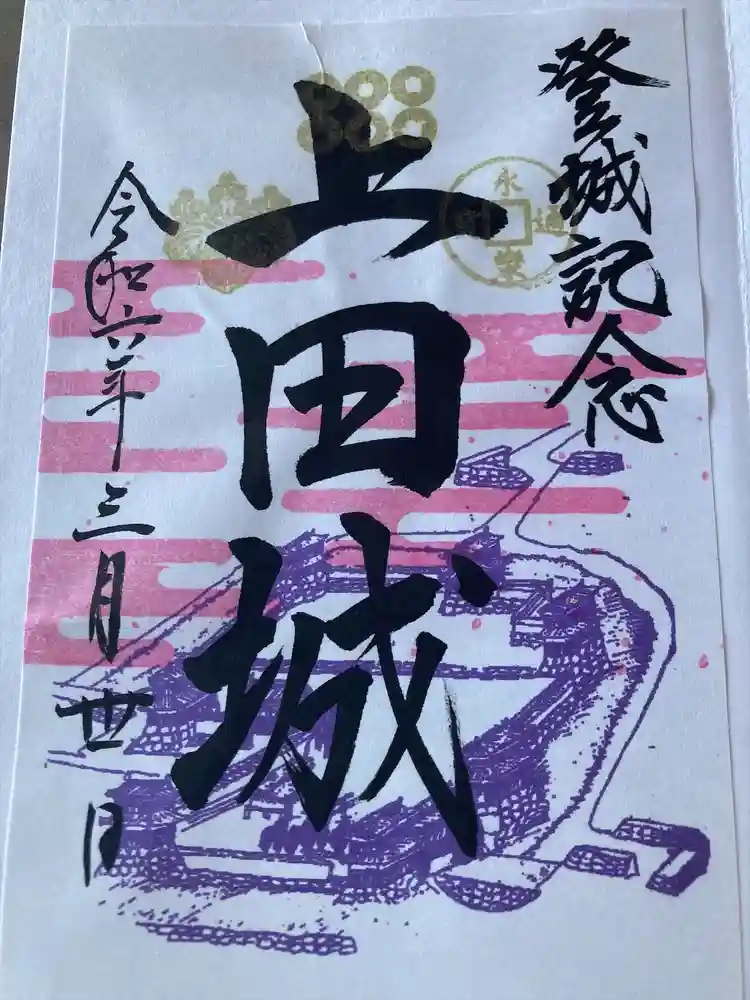 登城記念
上田城
令和六年三月卅日
永楽通